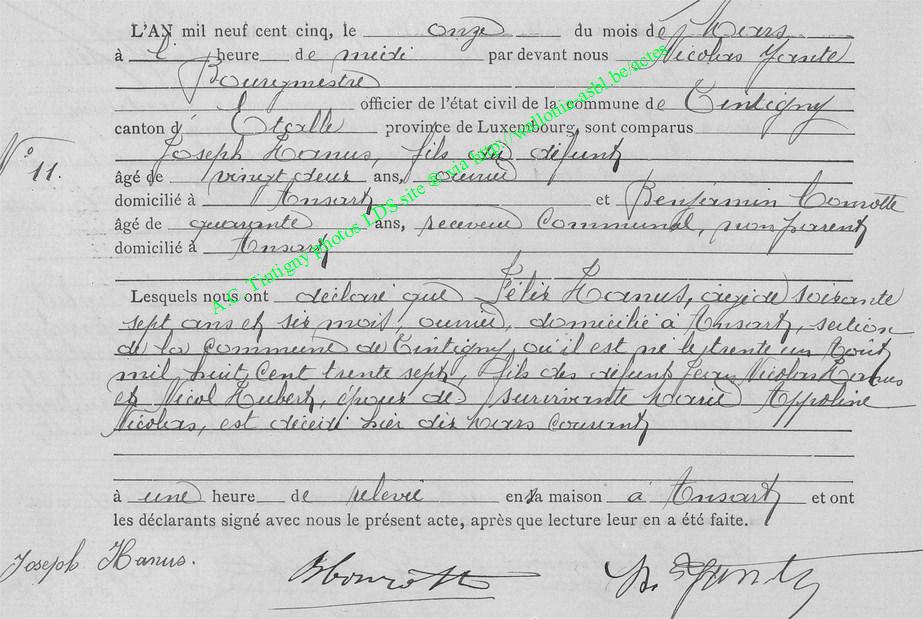 L'AN mil neuf cent cinq, le onze du mois de Mars
à l' heure de midi par devant nous Nicolas
Bourgmestre
officier de l'état civil de la commune de Tintigny
canton d' Etalle province de Luxembourg, sont comparus
Joseph Hanus, fils du défunt
N° 11.
âgé de vingt deux ans, ouvrier
domicilié à Ansart et Benjamin
âgé de quarante ans, receveur Communal, non parent
domicilié à Ansart
Lesquels nous ont déclaré que Félix Hanus, âgé de soixante
sept ans et six mois, ouvrier, domicilié à Ansart, section
de la Commune de Tintigny, où il est né le trente un Août
mil huit Cent trente sept, fils des défunt Jean Nicolas Hanus
et Nicol Hubert, époux de survivante Marie Appoline
Nicolas, est décédé hier dix Mars Courant
à une heure de relevée en sa maison à Ansart et ont
les déclarants signé avec nous le présent acte, après que lecture leur en a été faite.
Joseph Hanus.
A.G. Tintigny photos LDS site @ via http://wallonie.asbl.be/actes